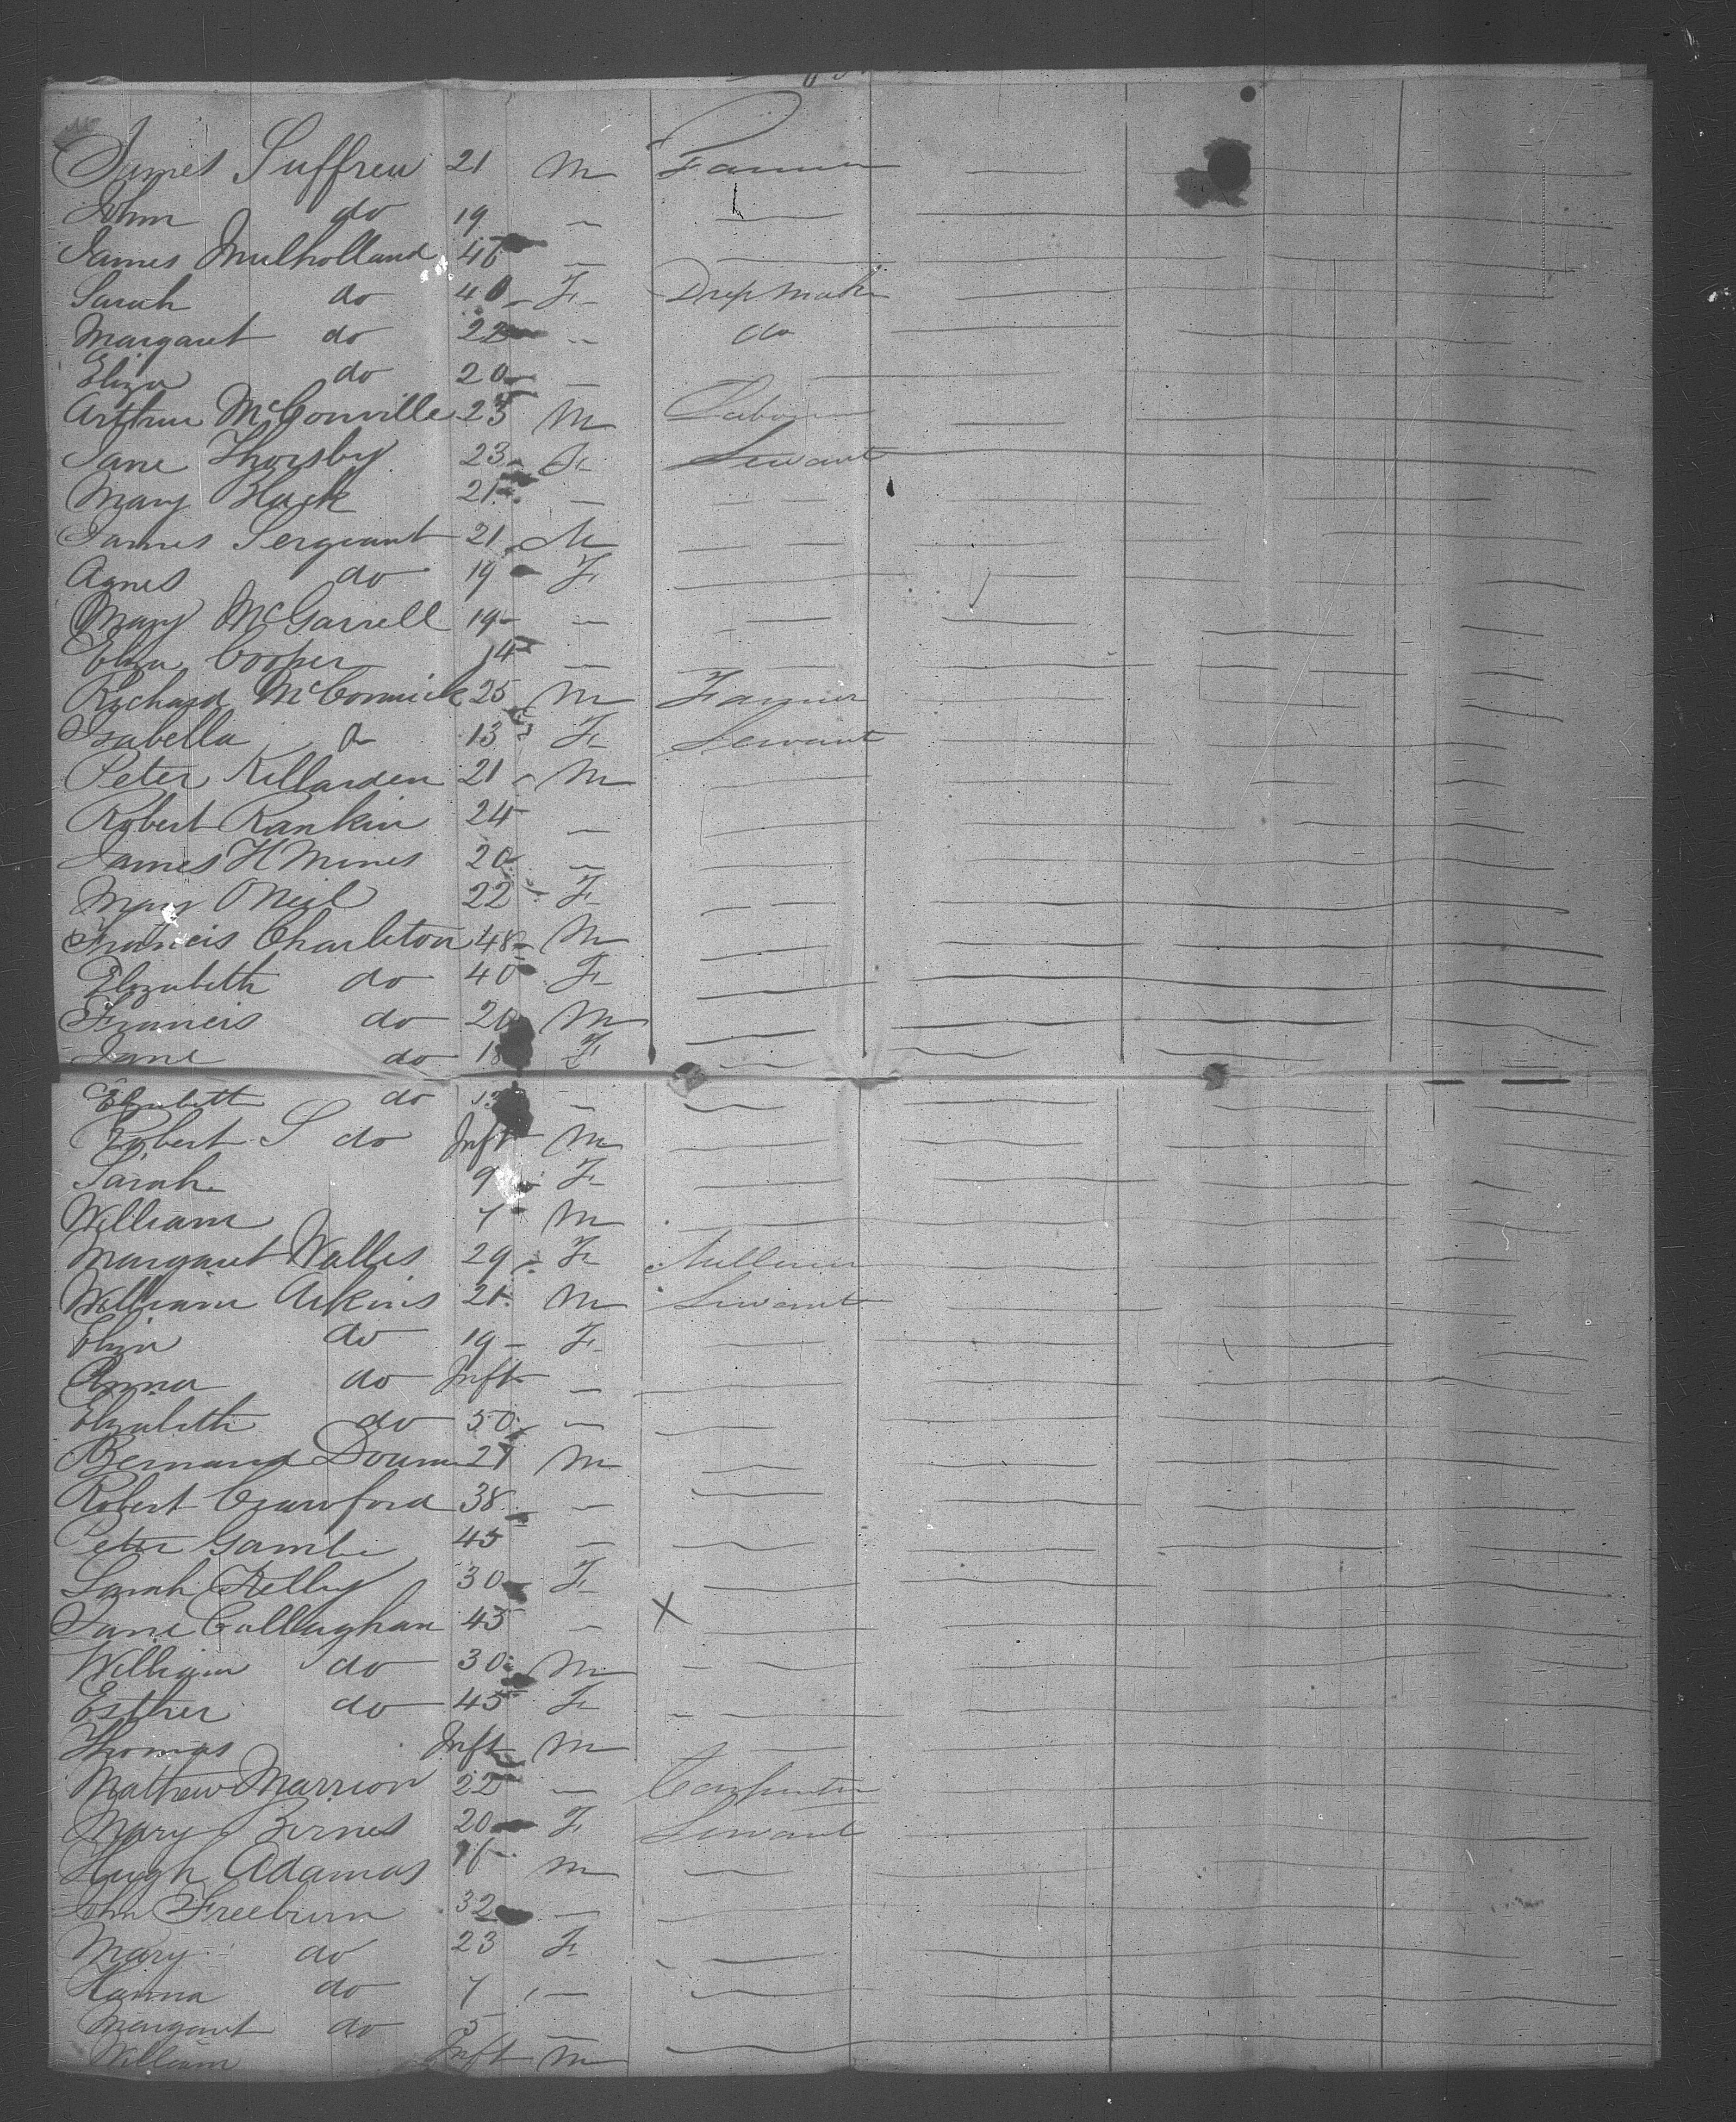 James Suffren 21 M Farmer
John do 19 —
James Mulholland 46 —
Sarah do 40 F Dressmaker
Margaret do 22 — do
Eliza do 20 —
Arthur McConville 25 M Labourer
Jane Thorsby 23 F Servant
Mary Black 21 —
James Sergeant 21 M
Agnes do 19 F
Mary McGarrell 19 —
Eliza Cooper 14 —
Richard McCormick 25 M Farmer
Isabella do 13 F Servant
Peter Killarden 21 M
Robert Rankin 24 —
James H Mines 20 —
Mary ONeil 22 F
Francis Charleton 48 M
Elizabeth do 40 F
Francis do 20 M
Jane do 18 F
Elizabeth do —
Robert S do Inft M
Sarah 9 F
William 7 M
Margaret Walles 29 F Milliner
William Aikins 21 M Servant
Eliza do 19 F
Anna do Inft —
Elizabeth do 50 —
Bernard 21 M
Robert Crawford 38 —
Peter Gamble 45 —
Sarah Kelly 30 F
Jane Callaghan 45 — X
William do 30 M
Esther do 45 F
Thomas Inft M
Mathew Marrion 22 — Carpenter
Mary Birnes 20 F Servant
Hugh Adamas 16 M
John Freeburn 32 —
Mary do 23 F
Hanna do 7 —
Margaret do 5 —
William Inft M